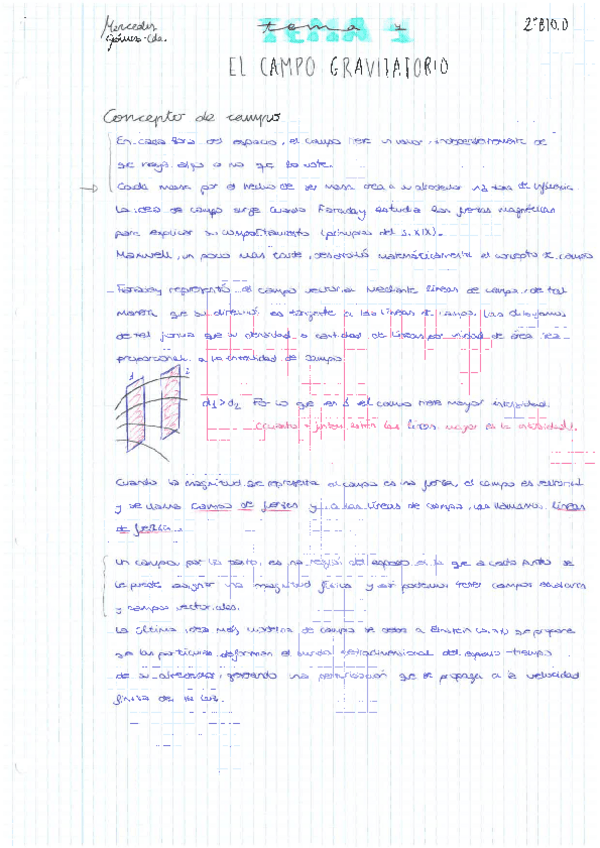 Mercedes
tema 1
2º BTO.D
TEMA 1
EL CAMPO GRAVITATORIO
Concepto de campo
En cada zona del espacio, el campo tiene un valor, independientemente de
que haya algo o no que lo note.
Cada masa por el hecho de ser masa crea a su alrededor una zona de influencia.
La idea de campo surge cuando Faraday estudia las fuerzas magnéticas
para explicar su comportamiento (principios del s. XIX).
Maxwell, un poco más tarde, desarrolló matemáticamente el concepto de campo
Faraday representó el campo vectorial mediante líneas de campo, de tal
manera que su dirección es tangente a las líneas de campo. Las dibujamos
de tal forma que su densidad o cantidad de líneas por unidad de área sea
proporcional a la intensidad de campo
1 2
d1 > d2 Por lo que en 1 el campo tiene mayor intensidad.
cuanto + juntas estén las líneas mayor es la intensidad.
Cuando la magnitud que representa el campo es una fuerza, el campo es vectorial
y se llama campo de fuerzas y a las líneas de campo, las llamamos líneas
de fuerza.
Un campo, por lo tanto, es una región del espacio en la que a cada punto se
le puede asignar una magnitud física y así podemos tener campos escalares
y campos vectoriales.
La última idea más moderna de campo se debe a Einstein se propone
que las partículas deforman el tetradimensional del espacio-tiempo
de su alrededor, generando una perturbación que se propaga a la velocidad
finita de la luz.